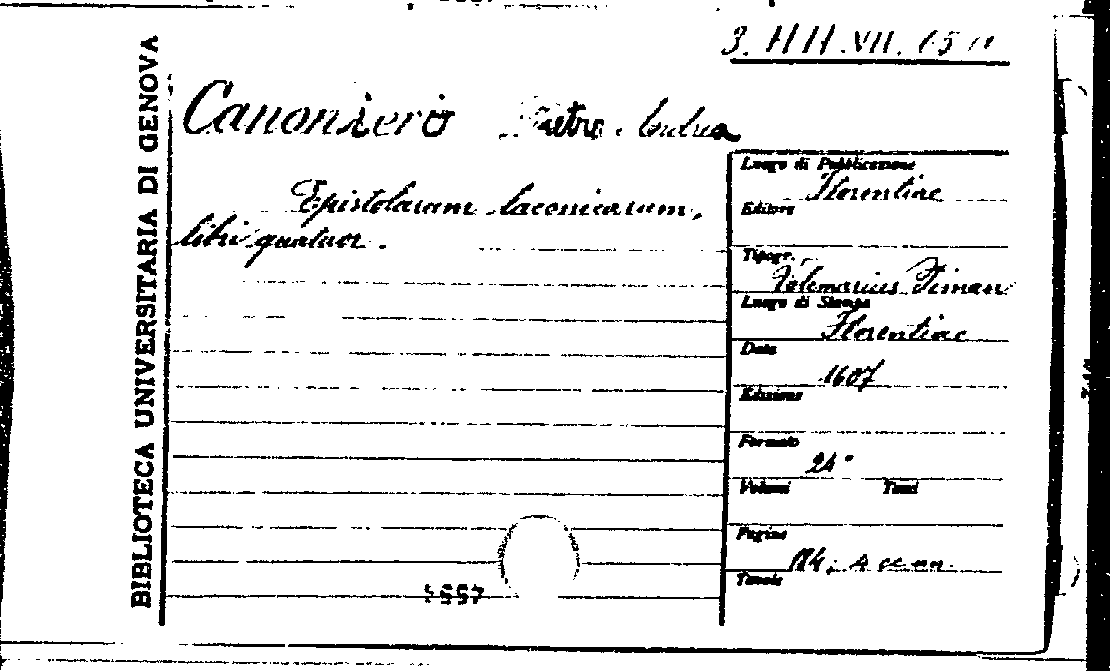 3. HH. VII. 65
BIBLIOTECA UNIVERSITARIA DI GENOVA
Canoniero Pietro Andrea
Epistolarum laconicarum,
libri quatuor.
Luogo di Pubblicazione
Florentiae
Editore
Tipogr.
Volcmarius Timan
Luogo di Stampa
Florentiae
Data
1607
Edizione
Formato
24°
Volumi Tomi
Pagine
184;
Tavole